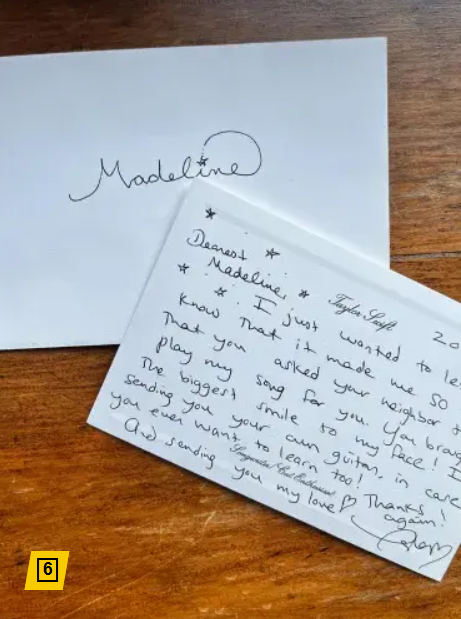 Madeline
Dearest
Madeline,
Taylor Swift
20
I just wanted to le
know that it made me SO
that you asked your neighbor t
play my song for you. You broug
the biggest smile to my face! I
sending you your own guitar, in case
you ever want to learn too!
Songwriter/Cat Enthusiast
Thanks again!
And sending you my love
6